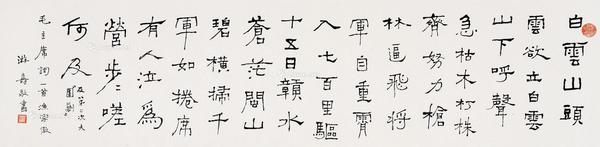 白雲山頭
雲欲立白雲
山下呼聲
急枯木朽株
齊努力槍
林逼飛將
軍自重霄
入七百里驅
十五日贛水
蒼茫閩山
碧橫掃千
軍如捲席
有人泣爲
營步〻嗟
何及
反第二次大
圍剿
毛主席詞一首漁家傲
游壽敬書